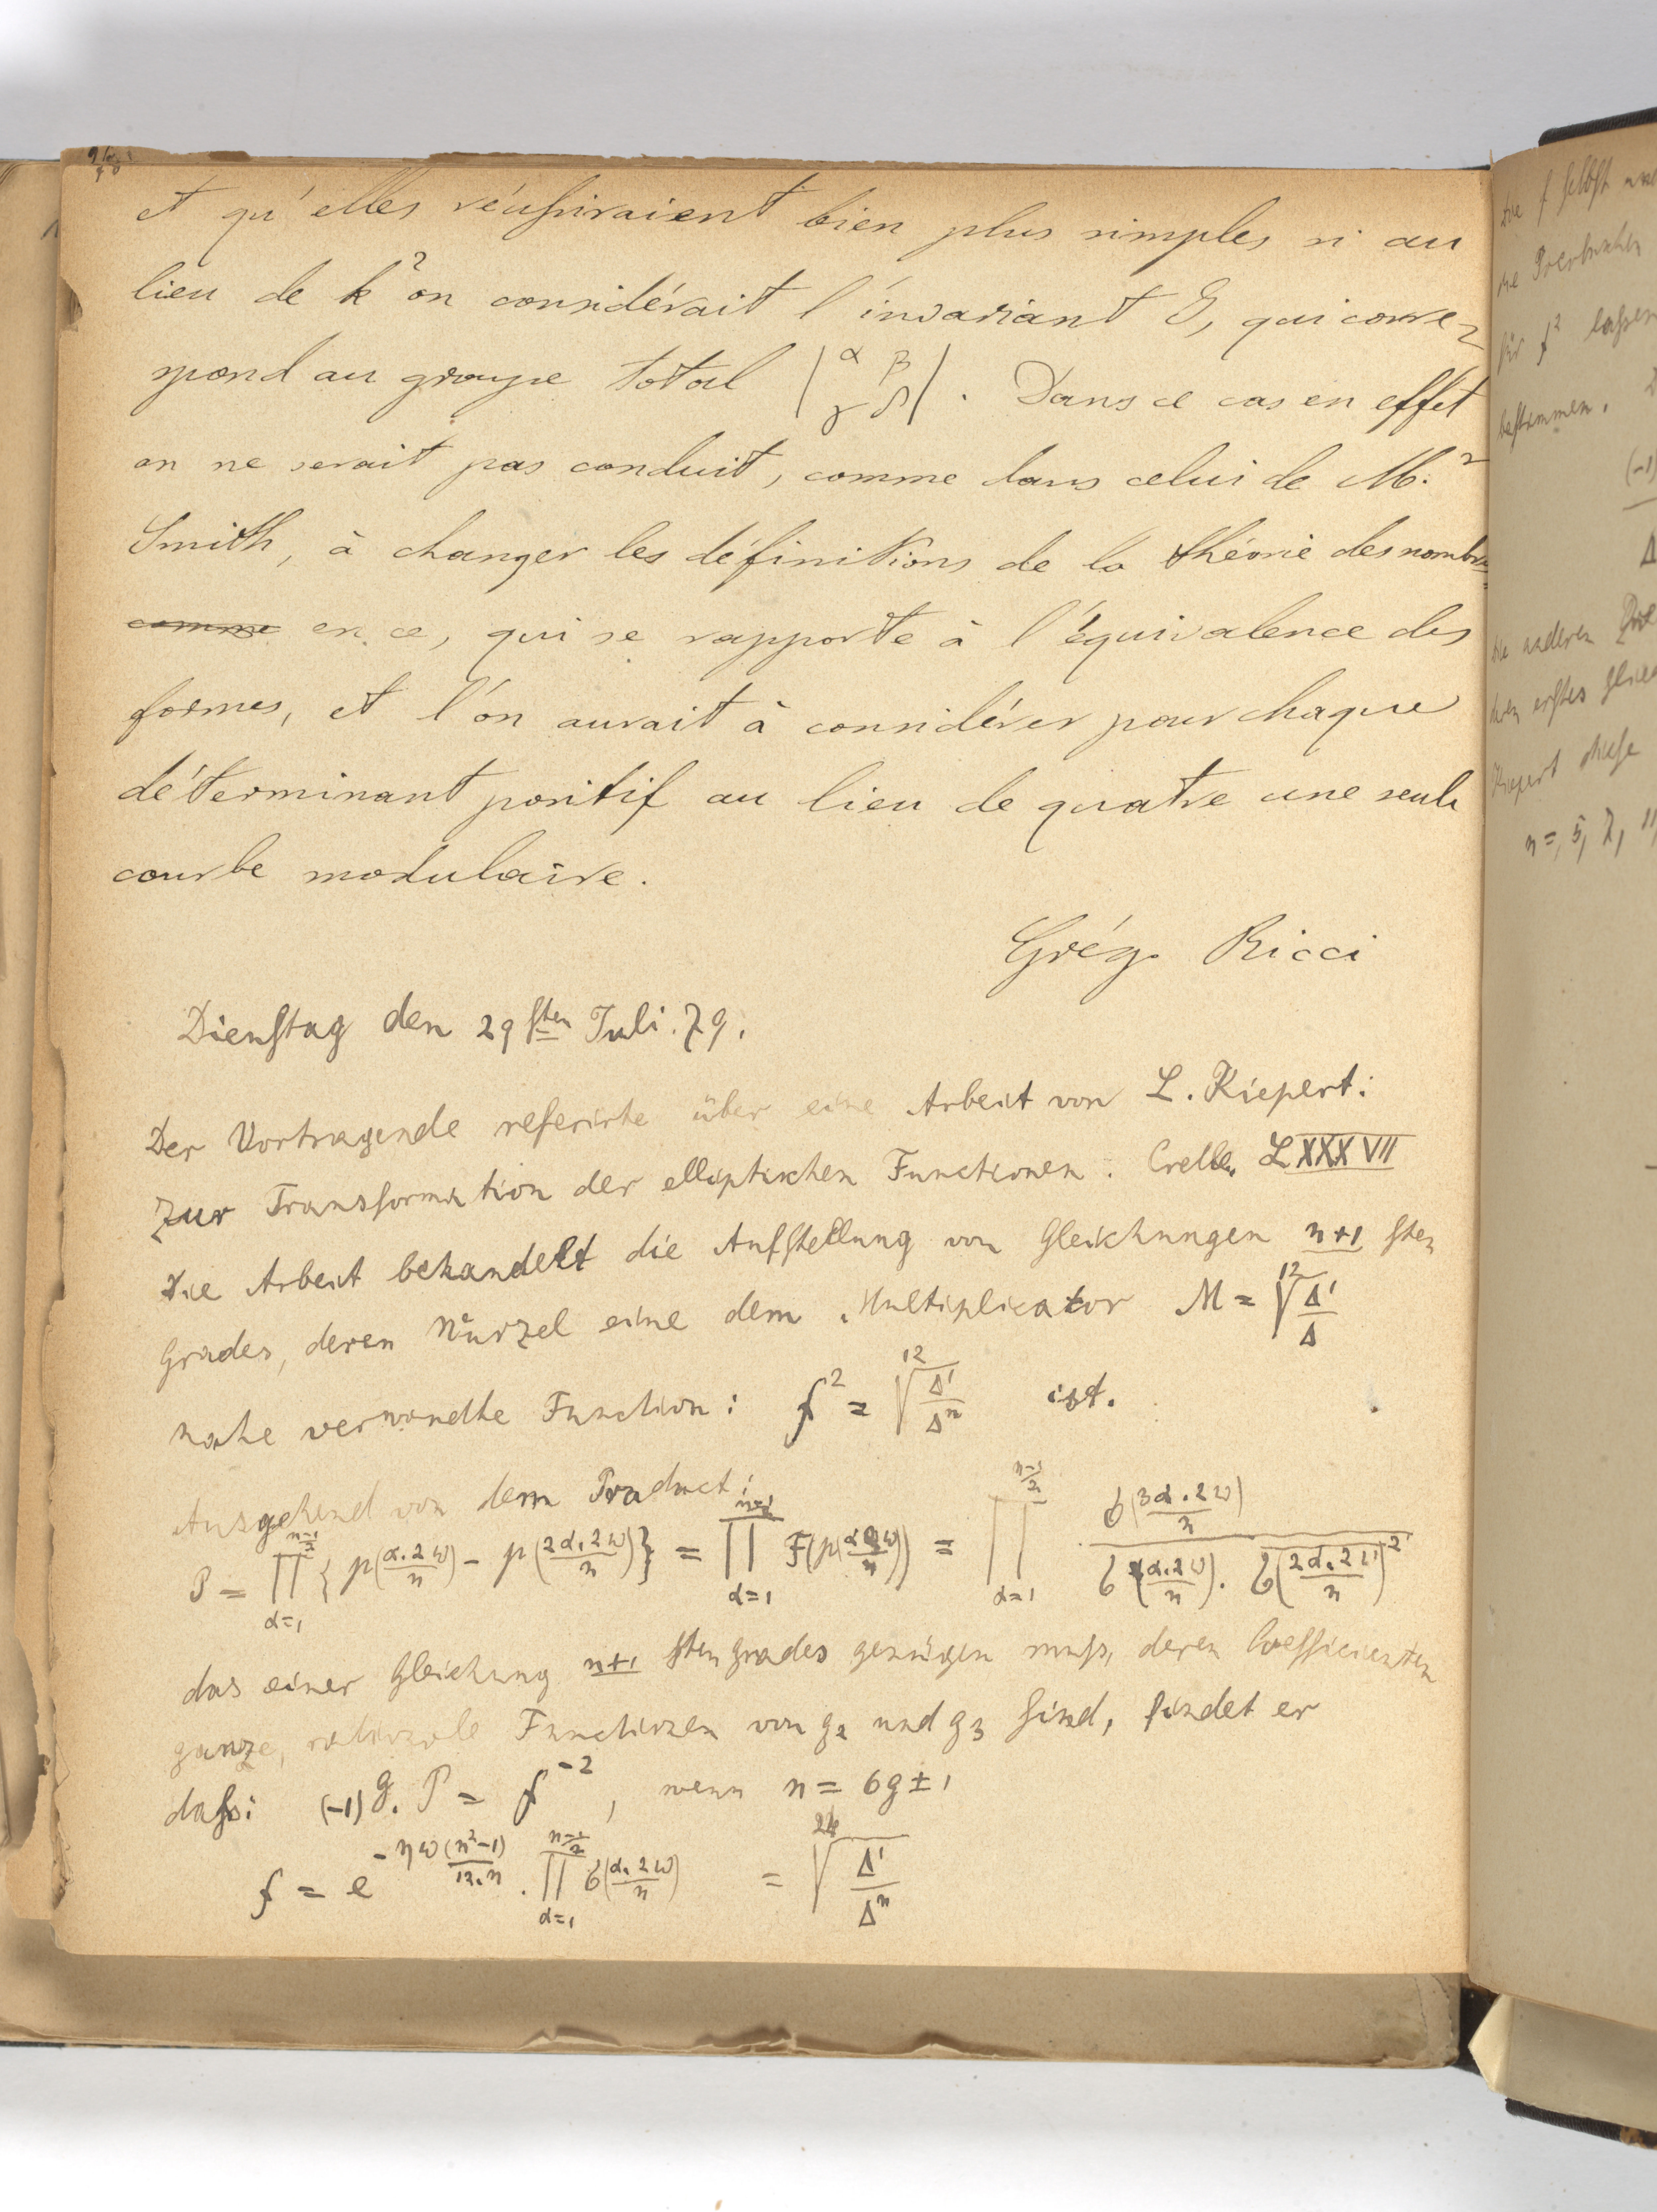 et qu'elles réussiraient bien plus simples si au
lieu de k² on considérait l'invariant J, qui corre-
spond au groupe total |α β γ δ|. Dans ce cas en effet
on ne serait pas conduit, comme dans celui de M.r
Smith, à changer les définitions de la théorie des nombres
comme en ce, qui se rapporte à l'équivalence des
formes, et l'on aurait à considérer pour chaque
déterminant positif au lieu de quatre une seule
courbe modulaire.
Grég. Ricci
Dienstag den 29sten Juli. 79.
Der Vortragende referirte über eine Arbeit von L. Kiepert:
Zur Transformation der elliptischen Functionen. Crelle, LXXXVII
Die Arbeit behandelt die Aufstellung von Gleichungen n+1 sten
Grades, deren Wurzel eine dem Multiplicator M = ¹²√(Δ'/Δ)
nahe verwandte Function: f² = ¹²√(Δ'/Δⁿ) ist.
Ausgehend von dem Product:
P = ∏_{α=1}^{(n-1)/2} {p(α.2ω/n) - p(2α.2ω/n)} = ∏_{α=1}^{(n-1)/2} F(p(α2ω/n)) = ∏_{α=1}^{(n-1)/2} σ(3α.2ω/n) / σ(α.2ω/n). σ(2α.2ω/n)²
das einer Gleichung n+1 sten Grades genügen muss, deren Coefficienten
ganze, rationale Functionen von g₂ und g₃ sind, findet er
dass: (-1)^g. P = f⁻², wenn n = 6g ± 1
f = e^{-ηω(n²-1)/12.n} . ∏_{α=1}^{(n-1)/2} σ(α.2ω/n) = ²⁴√(Δ'/Δⁿ)
die f selbst
für f² lassen
bestimmen.
(-1)
Δ
die anderen
deren erstes Glied
Kiepert diese
n=, 5, 7, 11,